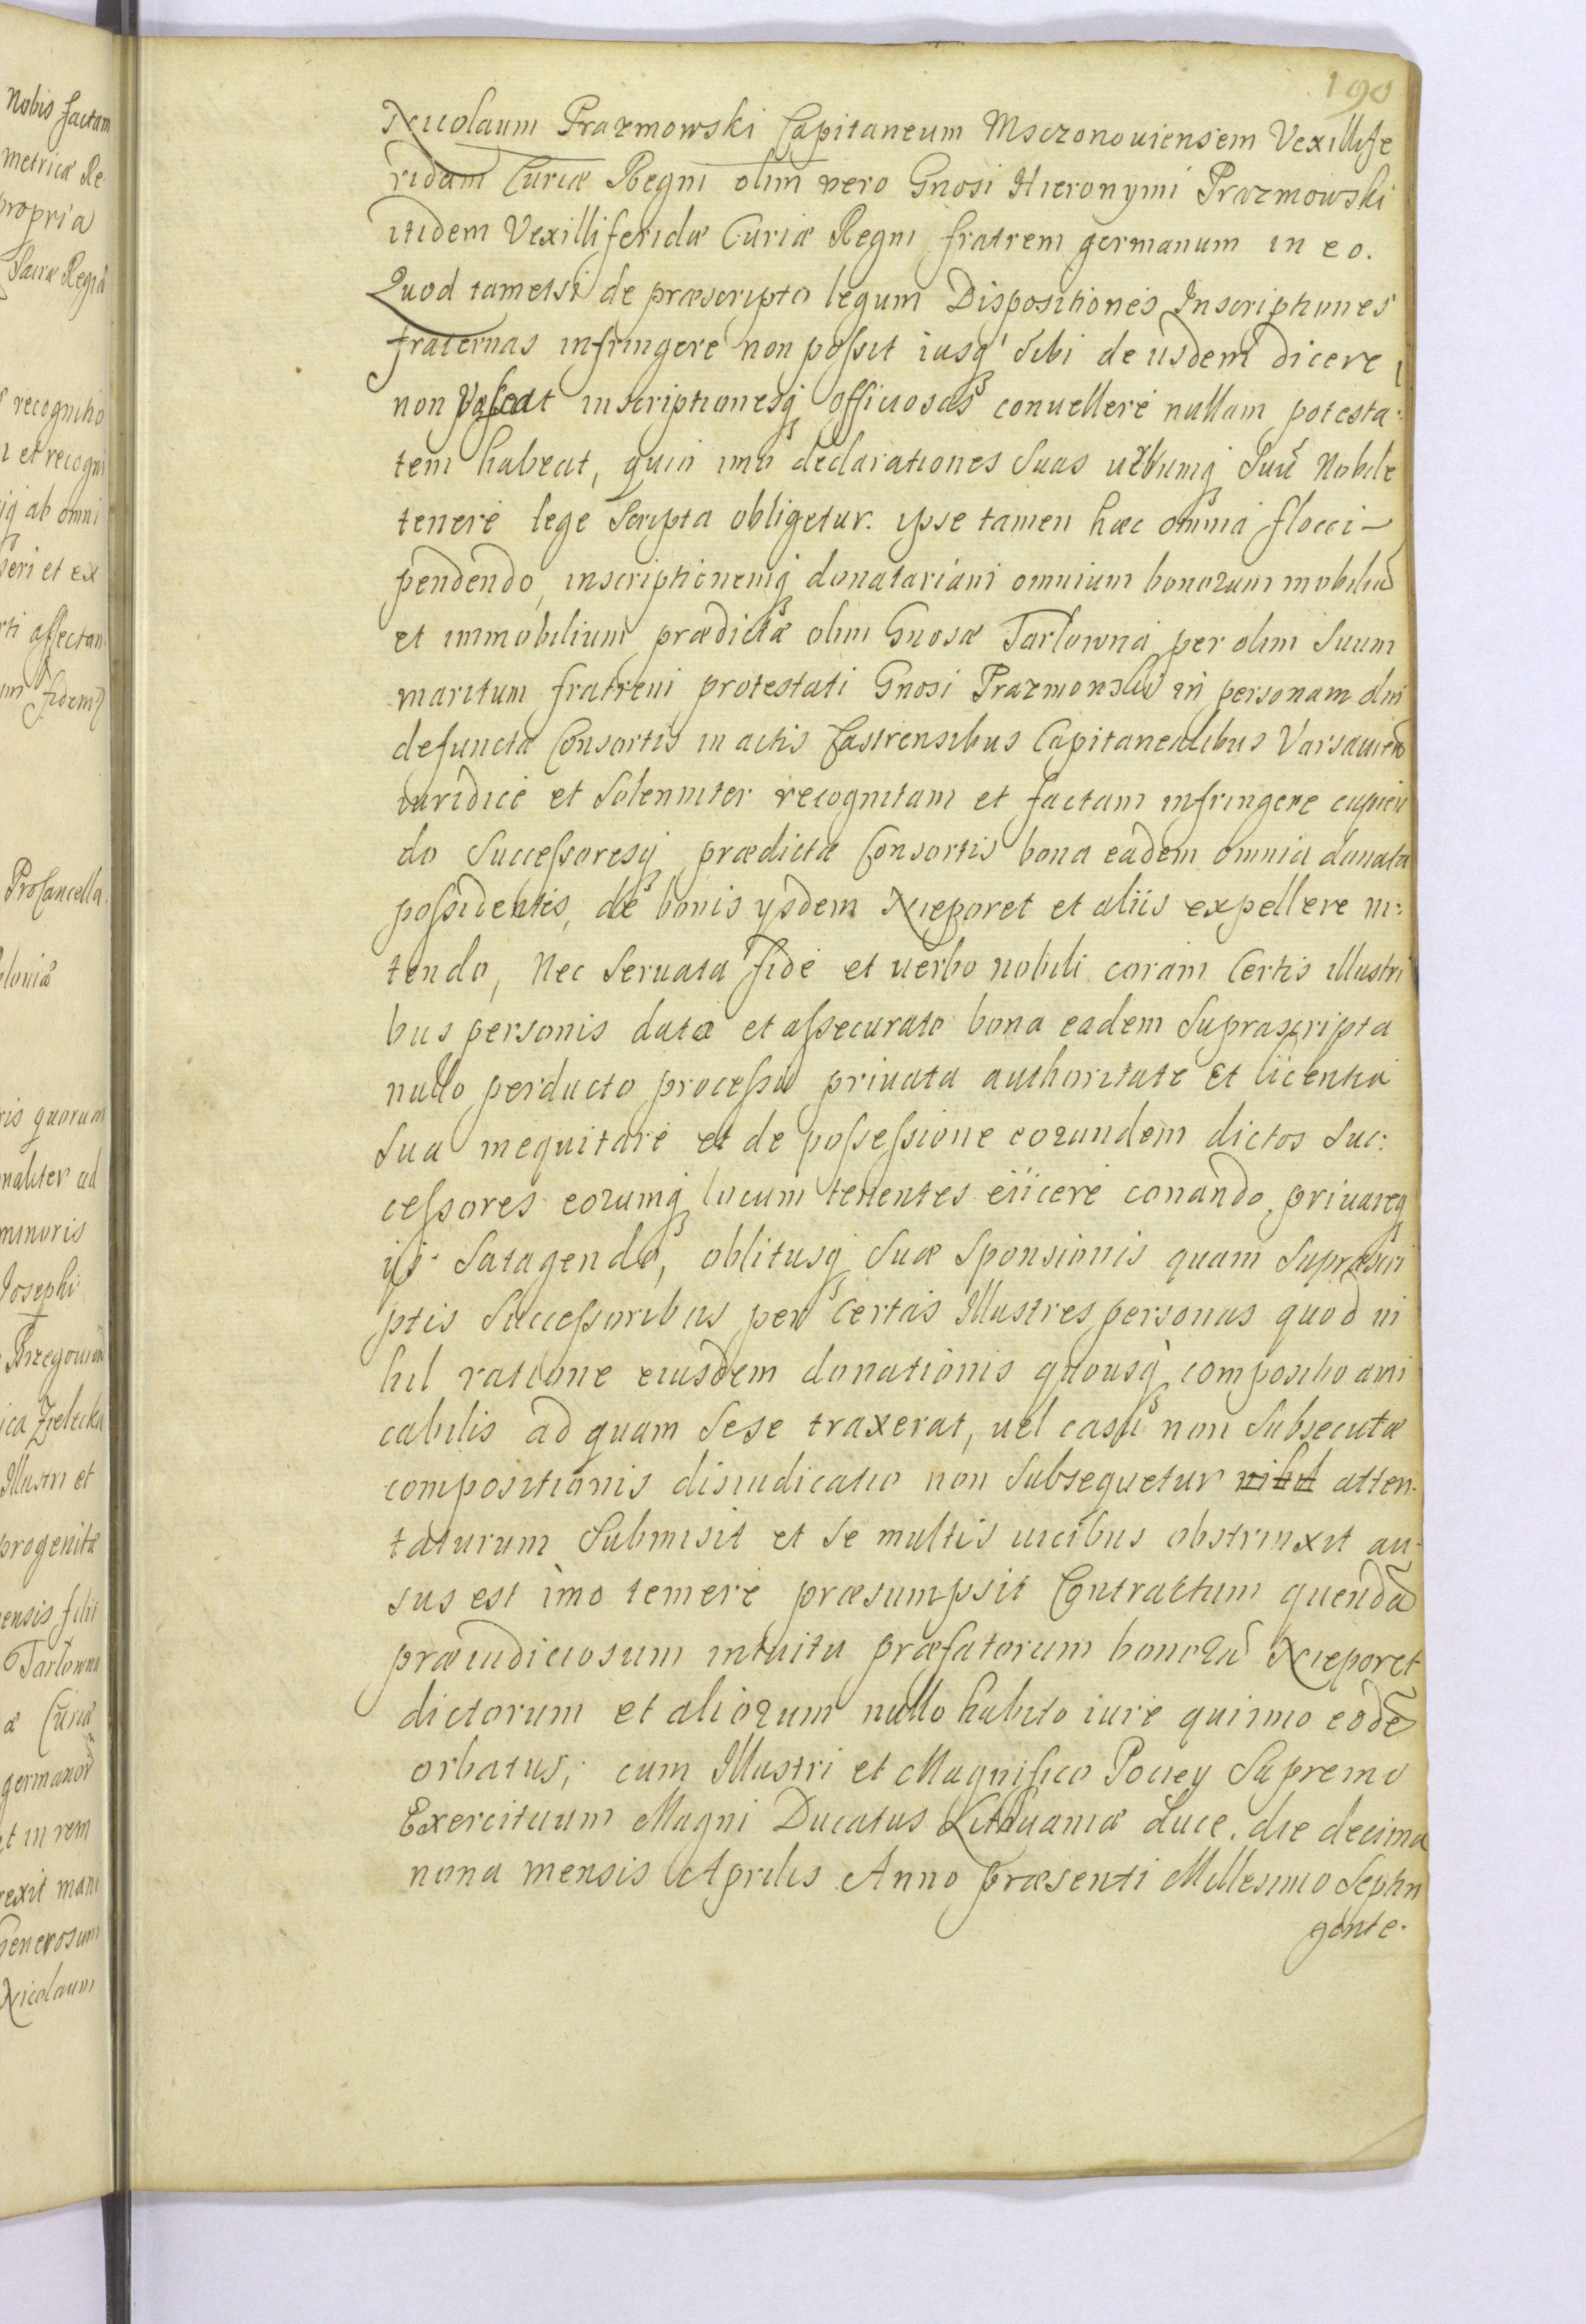 190
Nicolaum Prazmowski Capitaneum Msczonoviensem Vexillife
ridam Curiæ Regni olim vero Gnosi Hieronymi Prazmowski
itidem Vexilliferidæ Curiæ Regni fratrem germanum in eo.
Quod tametsi de præscripto legum Dispositiones Inscriptiones
fraternas infringere non possit iusq' sibi de iisdem dicere
non valeat inscriptionesq officiosas convellere nullam potesta
tem habeat, quin imo declarationes suas verbumq suũ Nobile
tenere lege scripta obligetur. ipse tamen hæc omnia flocci-
pendendo, inscriptionemq donatariam omnium bonorum mobiliũ
et immobilium prædictæ olim Gnosæ Tarlowna per olim suum
maritum fratrem protestati Gnosi Prazmowski in personam
defunctæ Consortis in actis Castrensibus Capitanealibus Varsavien
iuridice et solenniter recognitam et factam infringere cupien
do successoresq prædictæ Consortis bona eadem omnia donata
possidentes, de bonis ysdem Nieporet et aliis expellere ni:
tendo, Nec servata fide et verbo nobili coram Certis illustri
bus personis data et assecurato bona eadem suprascripta
nullo perducto processu privata authoritate et licentia
sua inequitare et de possessione eorundem dictos suc:
cessores eorumq locum tenentes eiicere conando, privareq
ys satagendo, oblitusq suæ sponsionis quam suprascri
ptis successoribus per certas Illustres personas quod ni
hil ratione eiusdem donationis quousq compositio ami
cabilis ad quam sese traxerat, vel casu non subsecutæ
compositionis disiudicatio non subsequetur nihil atten-
taturum submisit et se multis vicibus obstrinxit au-
sus est imo temere præsumpsit Contractum quendã
præiudiciosum intuitu præfatorum bonorũ Nieporet
dictorum et aliorum nullo habito iure quinimo eodẽ
orbatus; cum Illustri et Magnifico Pociey Supremo
Exercituum Magni Ducatus Lithuaniæ Duce. die decima
nona mensis Aprilis Anno præsenti Millesimo Septin
gente.
Nobis factam
metricæ Re
propria
Sacræ Regiæ
recognitio
et recogni
iq ab omni
et ex
affectan
fidem
ProCancella
loniæ
quorum
naliter ad
minoris
Josephi
ica Zielecka
Illustri et
progenitæ
ensis filii
Tarlowna
æ Curiæ
germanor
t in rem
rexit mani
Generosum
Nicolaum